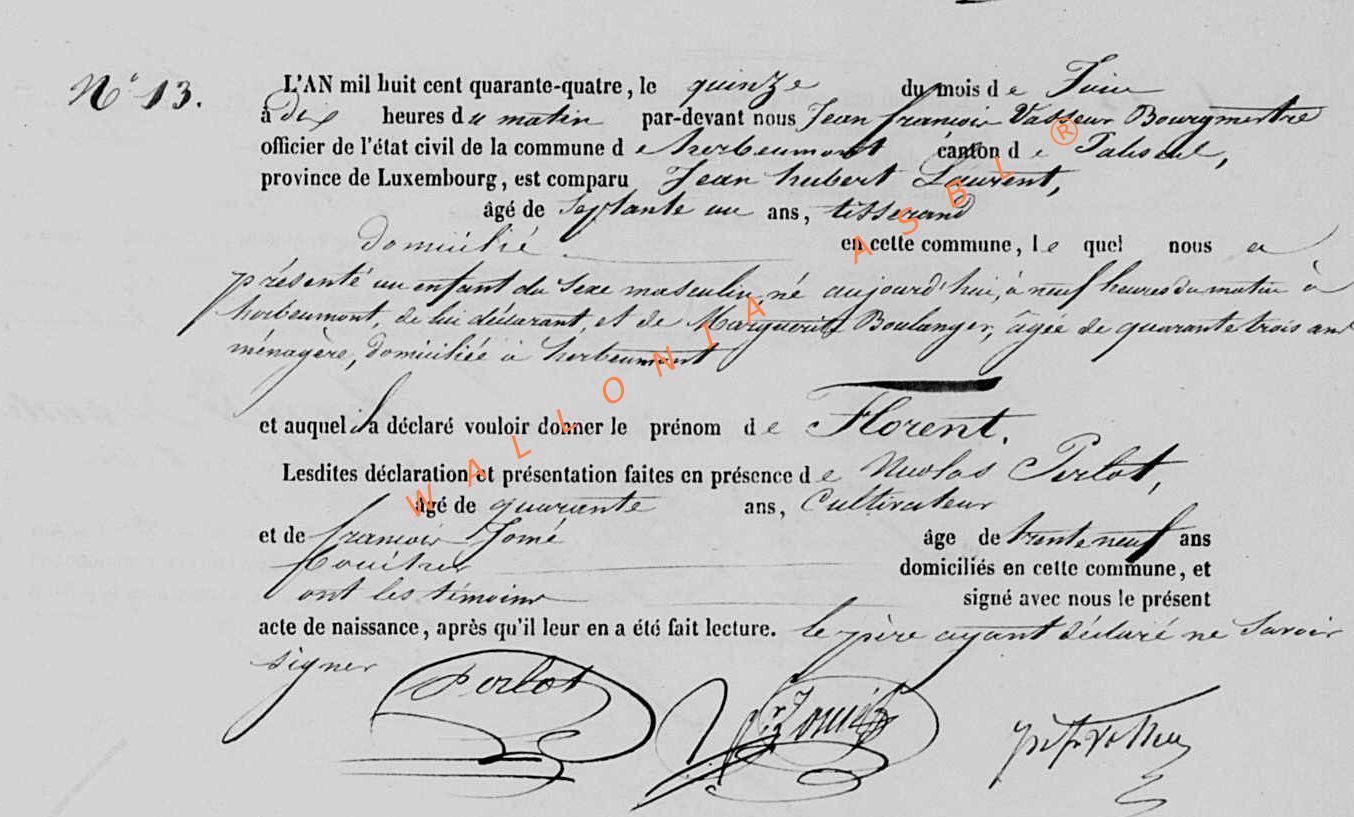 N° 13. L'AN mil huit cent quarante-quatre, le quinze du mois de Juin
à dix heures du matin par-devant nous Jean françois Vasseur Bourgmestre
officier de l'état civil de la commune de herbeumont canton de Paliseul,
province de Luxembourg, est comparu Jean hubert Laurent,
âgé de septante un ans, tisserand
domicilié en cette commune, le quel nous a
présenté un enfant du sexe masculin, né aujourd'hui, à neuf heures du matin à
herbeumont, de lui déclarant, et de Marguerite Boulanger, âgée de quarante trois ans
ménagère, domiciliée à herbeumont
et auquel il a déclaré vouloir donner le prénom de Florent.
Lesdites déclaration et présentation faites en présence de Nicolas Perlot,
âgé de quarante ans, Cultivateur
et de françois Jomé âge de trente neuf ans
domiciliés en cette commune, et
ont les témoins signé avec nous le présent
acte de naissance, après qu'il leur en a été fait lecture. le père ayant déclaré ne savoir
signer
Perlot
WALLONIA ASBL ®